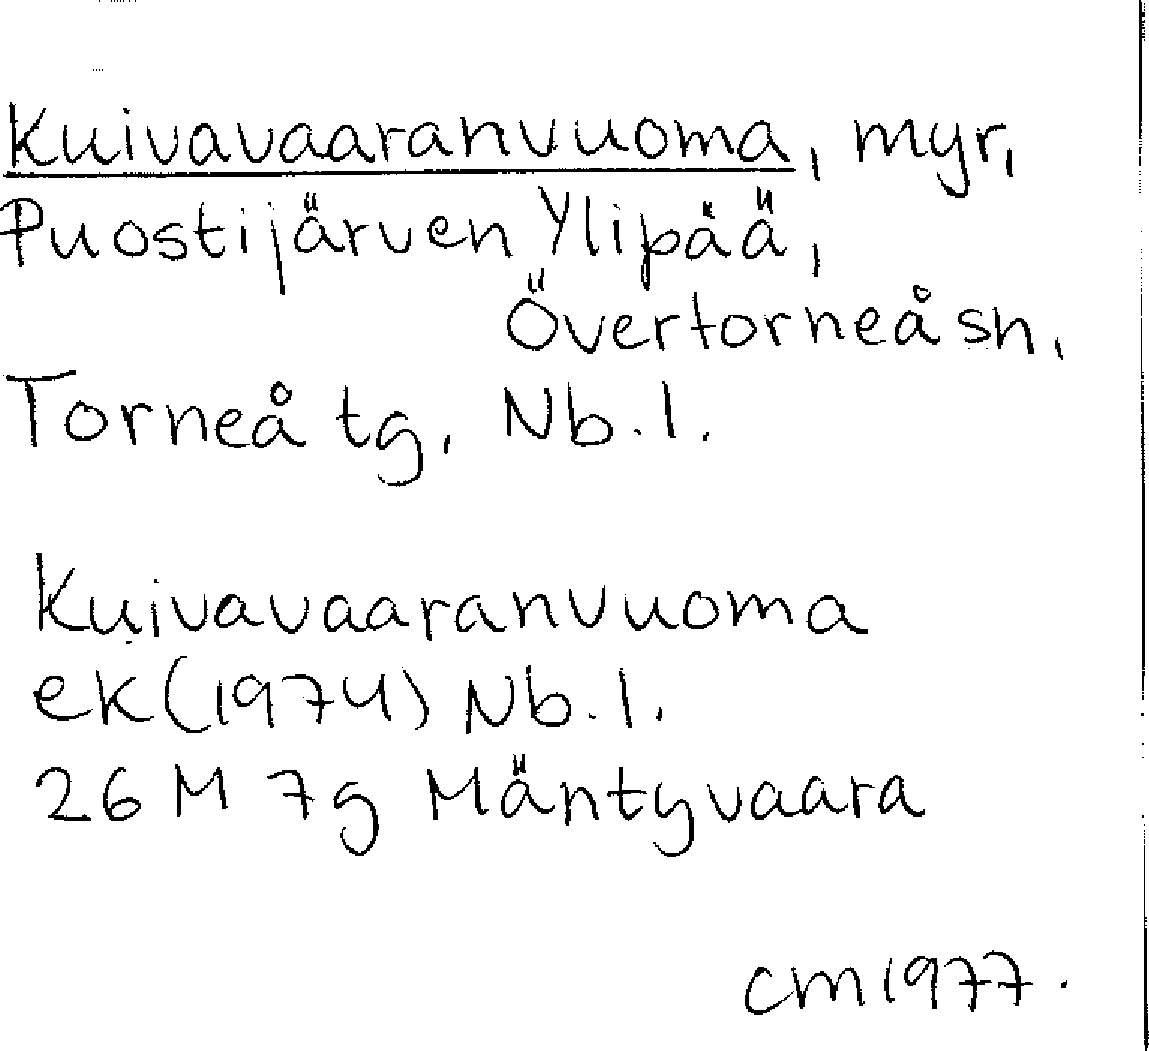 Kuivavaaranvuoma, myr,
Puostijärven Ylipää,
Övertorneå sn,
Torneå tg, Nb.l.
Kuivavaaranvuoma
ek (1974) Nb.l.
26 M 7g Mäntyvaara
CM 1977.